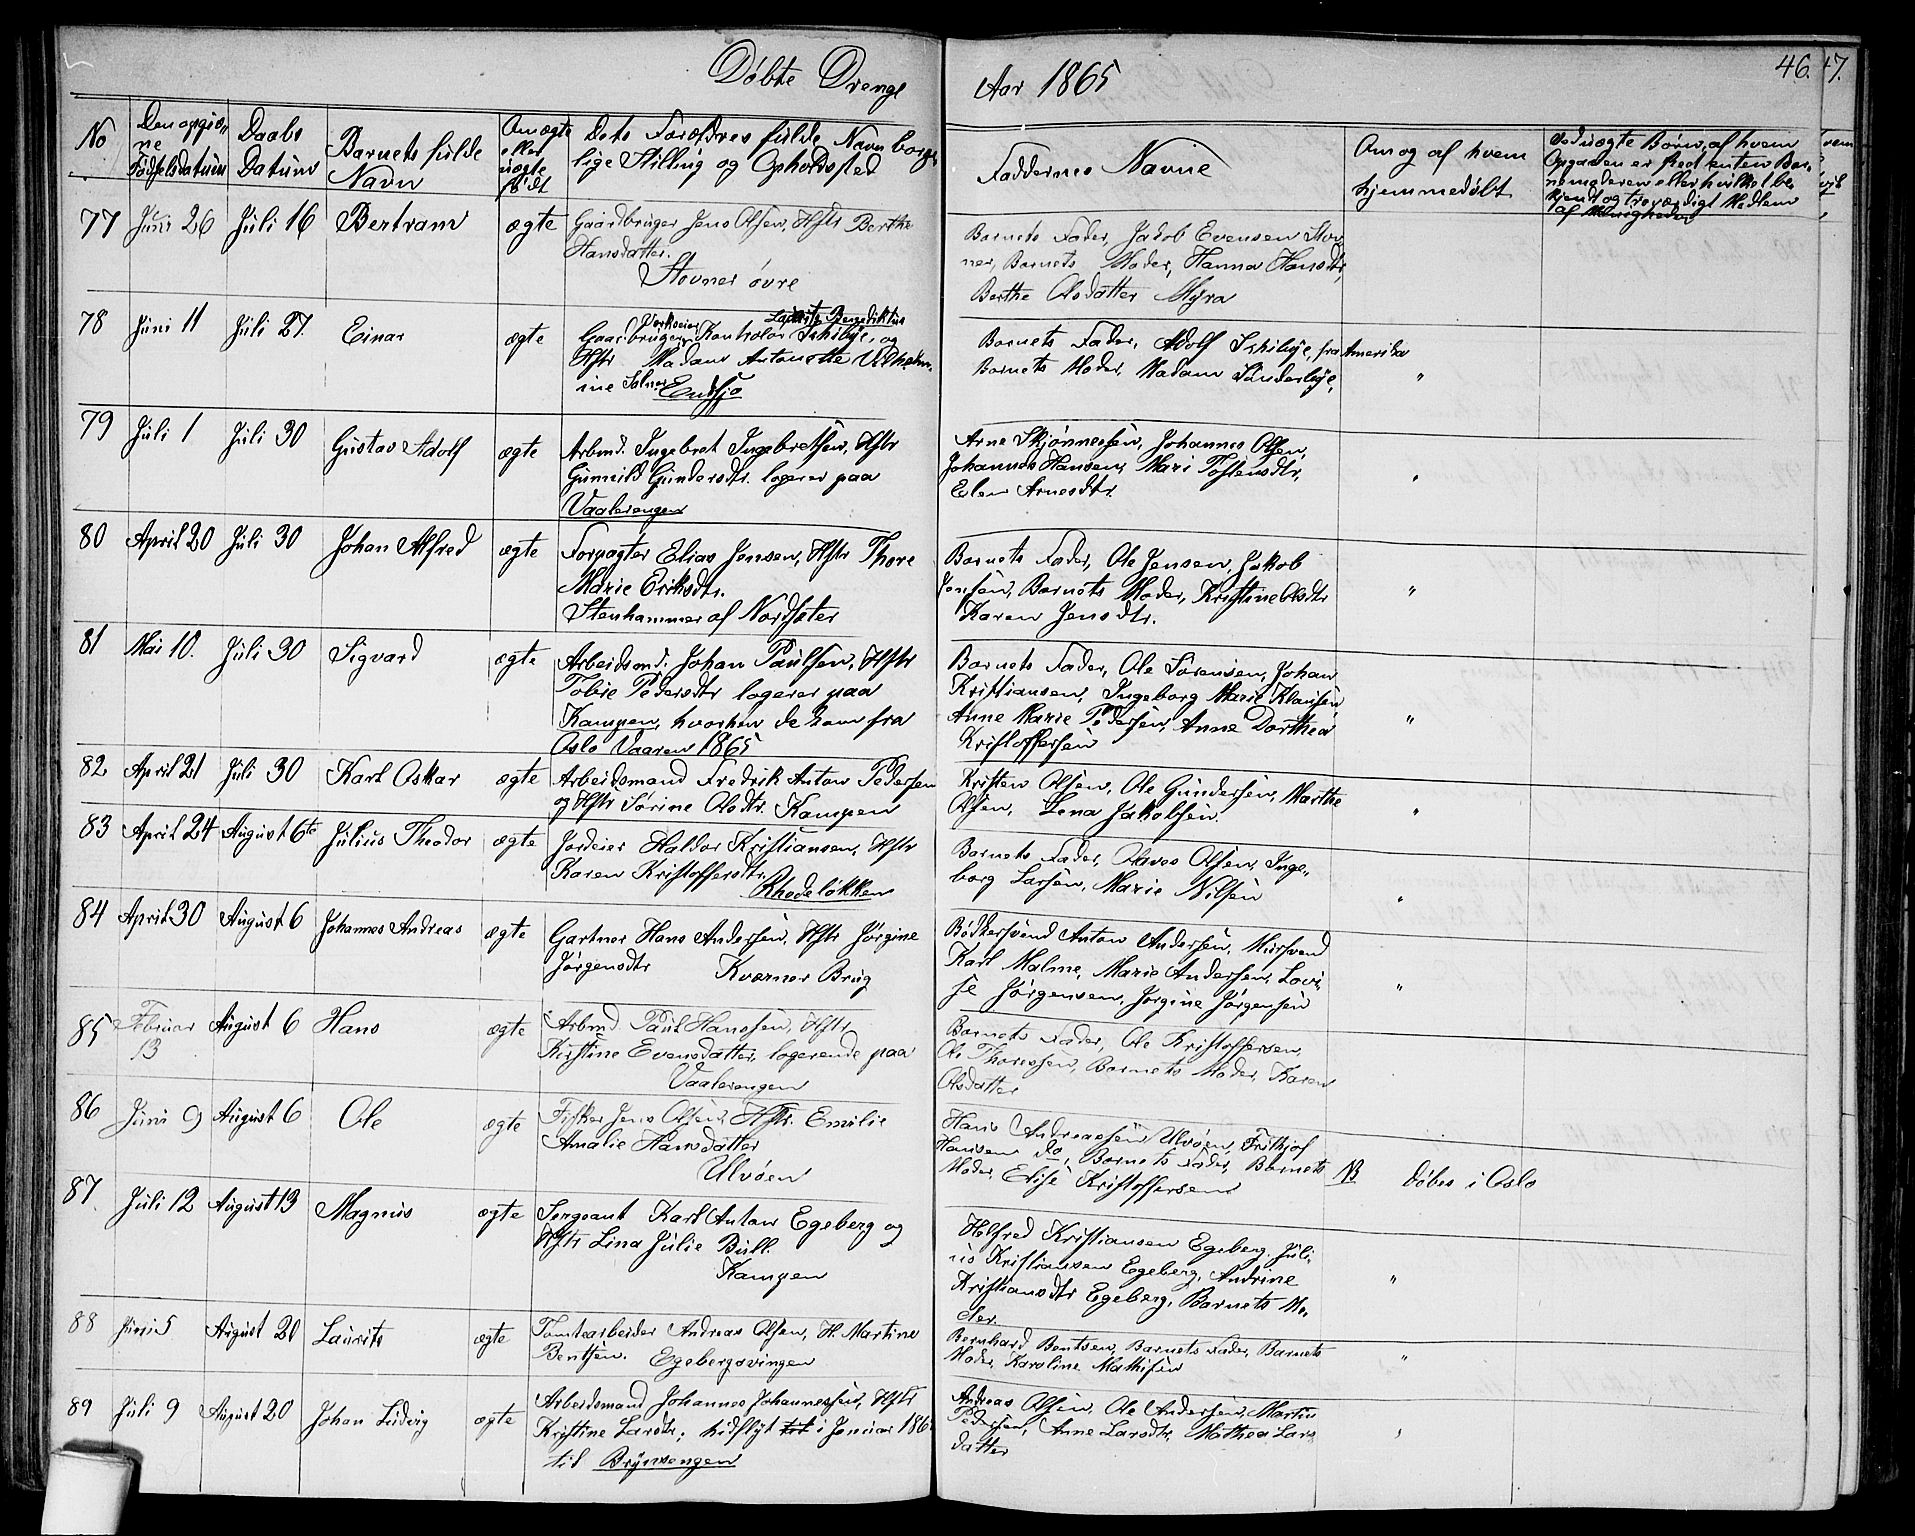 Døbte Drenge Aar 1865 46. 47.
No
Den opgivne Fødselsdatum
Daabs Datum
Barnets fulde Navn
Om ægte eller uægte født
Dets Forældres fulde Navn borgerlige Stilling og Opholdssted
Faddernes Navne
Om og af hvem hjemmedøbt
77 Juni 26 Juli 16 Bertram ægte Gaardbruger Jens Olsen, Hstr Berthe
Hansdatter.
Stovner øvre
Barnets Fader, Jakob Evensen Stov
ner, Barnets Moder, Hanna Hansdtr,
Berthe Olsdatter Myra
78 Juni 11 Juli 27. Einar ægte
Gaardbruger Kontrolør Eskildye, og
Hstr Madam Antonette Vilhelm
ine
Endsjø
Barnets Fader, Adolf fra Amerika
Barnets Moder, Madam Sønderbye, "
79 Juli 1 Juli 30 Gustav Adolf ægte Arbmd. Ingebret Ingebretsen, Hstr
Gunnild Gundersdtr. logerer paa
Vaalerengen
Arne Skjønnessen, Johannes Olsen,
Johannes Hansen, Mari Tostensdtr,
Elen Arnesdtr. "
80 April 20 Juli 30 Johan Alfred ægte Forpagter Elias Jensen, Hstr Thore
Marie Eriksdtr.
Stenhammer af Nordseter
Barnets Fader, Ole Jensen, Jakob
Jensen, Barnets Moder, Kristine Olsdtr
Karen Jensdtr. "
81 Mai 10. Juli 30 Sigvard ægte Arbeidsmd. Johan Paulsen, Hstr
Tobie Pedersdtr logerer paa
Kampen, hvorhen de kom fra
Oslo Vaaren 1865
Barnets Fader, Ole Sørensen, Johan
Kristiansen, Ingeborg Marie Klausen,
Anne Marie Pedersen, Anne Dorthea
Kristoffersen "
82 April 21 Juli 30 Karl Oskar ægte Arbeidsmand Fredrik Anton Pedersen
og Hstr Sørine Olsdtr. Kampen
Kristen Olsen, Ole Gundersen, Marthe
Olsen, Lena Jakobsen. "
83 April 24 August 6te Julius Theodor ægte Jordeier Haldor Kristiansen, Hstr
Karen Kristoffersdtr.
Rhodeløkken
Barnets Fader, Olaves Olsen, Inge-
borg Larsen, Marie Nilsen "
84 April 30 August 6 Johannes Andreas ægte Gartner Hans Andersen, Hstr Jørgine
Jørgensdtr Kværner Brug
Bødkersvend Anton Andersen, Mursvend
Karl Malme, Marie Andersen, Lovi-
se Jørgensen, Jørgine Jørgensen "
85 Februar 13 August 6 Hans ægte Arbmd. Paul Hansen, Hstr
Kirstine Evensdatter, logerende paa
Vaalerengen
Barnets Fader, Ole Kristoffersen,
Ole Thoresen, Barnets Moder, Karen
Olsdatter
86 Juni 9 August 6 Ole ægte Fisker Jens Olsen, Hstr. Emilie
Amalie Hansdatter
Ulvøen
Hans Andreassen Ulvøen, Frithjof
Hansen do, Barnets Fader, Barnets
Moder, Elise Kristoffersen
NB døbes i Oslo
87. Juli 12 August 13 Magnus ægte Sergeant Karl Anton Egeberg og
Hstr Lina Julie Bull.
Kampen
Helfred Kristiansen Egeberg. Juli-
us Kristiansen Egeberg, Andrine
Kristiansdtr Egeberg, Barnets Mo-
der. "
88 Juni 5 August 20 Laurits ægte Tomtearbeider Andreas Olsen, H. Martine
Bentsen. Egebergsvingen
Bernhard Bentsen, Barnets Fader, Barnets
Moder, Karoline Mathisen "
89 Juli 9 August 20 Johan Ludvig ægte Arbeidsmand Johannes Johannessen, Hstr
Kristine Larsdtr; hidflyt i Januar 186
til Brynsengen
Andreas Olsen, Ole Andersen, Martin
Pedersen, Anne Larsdtr, Mathea Lars
datter "